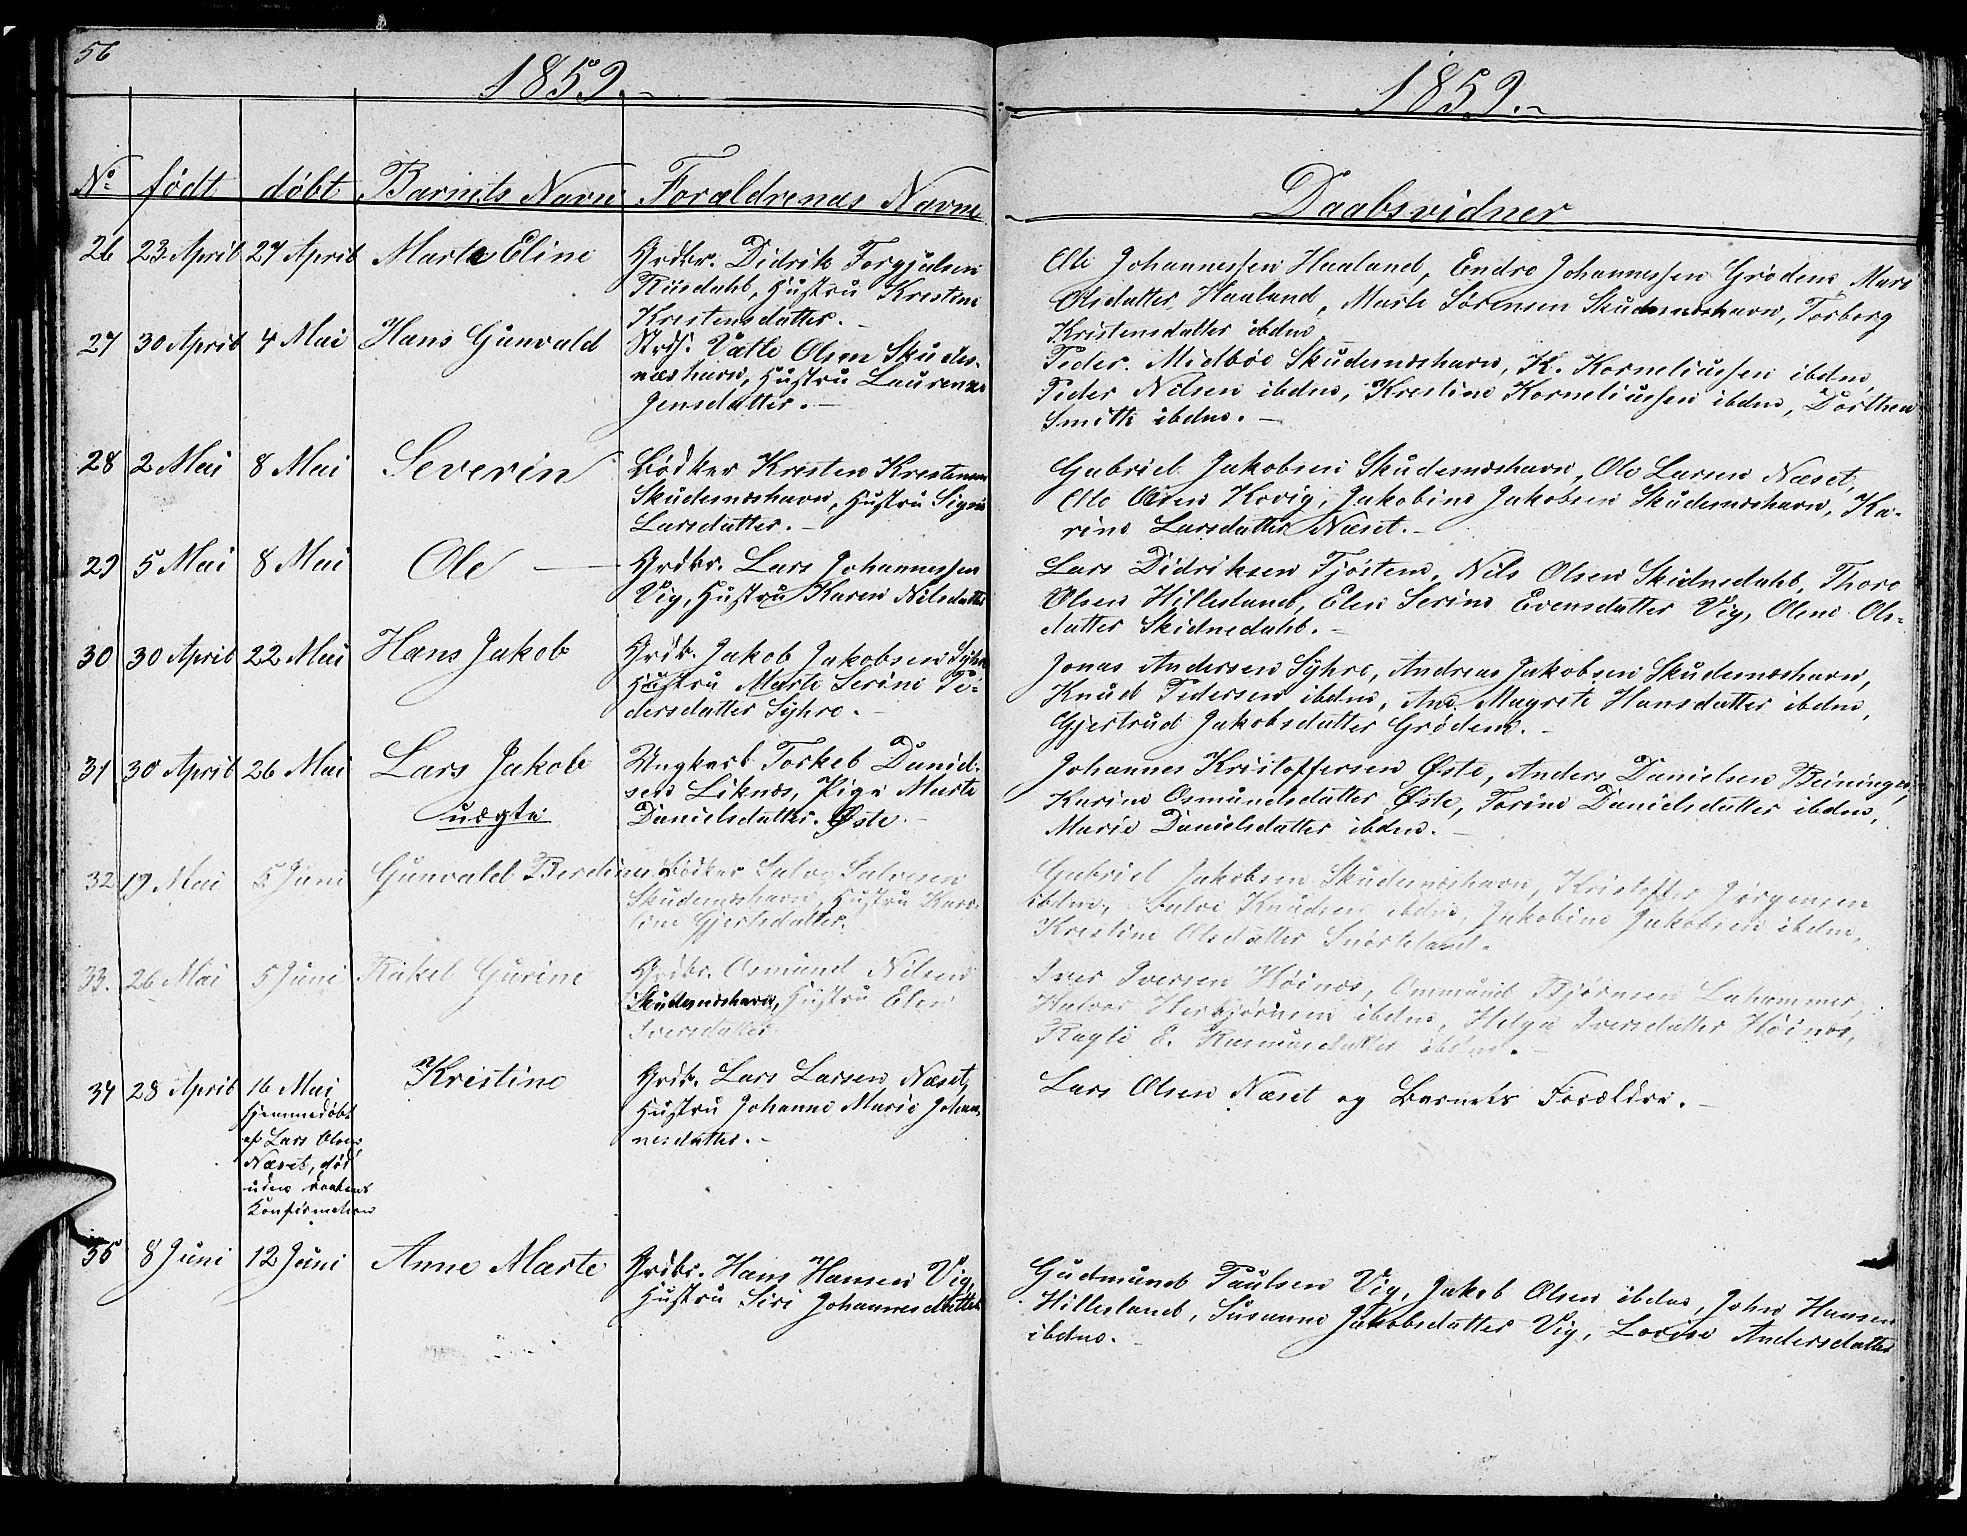 56
1859.-
1859.-
No
født
døbt
Barnets Navn
Forældrenes Navne
Daabsvidner
26
23 April
27 April
Marte Eline
Grdbr. Didrik Torgjulsen
Risdahl, Hustru Kristine
Kristensdatter.-
Ole Johannessen Haaland, Endre Johannessen Grødem, Mari
Olsdatter Haaland, Marte Sørensen Skudesneshavn, Torborg
Kristensdatter ibdm
27
30 April
4 Mai
Hans Gunvald
Strds. Vatle Olsen Skudes-
næshavn, Hustru Laurense
Jensdatter.-
Peder Midbøe Skudesneshavn, K. Korneliussen ibdm,
Peder Nilsen ibdm, Kristine Korneliussen ibdm, Dorthea
Smith ibdm.-
28
2 Mai
8 Mai
Severin
Bødker Kristen Kristensen
Skudesneshavn, Hustru Signe
Larsdatter.-
Gabriel Jakobsen Skudesneshavn, Ole Larsen Næset,
Ole Olsen Kovig, Jakobine Jakobsen Skudesneshavn, Ka-
rine Larsdatter Næset.-
29
5 Mai
8 Mai
Ole
Grdbr. Lars Johannessen
Vig, Hustru Karen Nilsdatter
Lars Didriksen Fjøstem, Nils Olsen Skidnedahl, Thore
Olsen Hillesland, Elen Serine Evensdatter Vig, Olene Ols-
datter Skidnedahl.-
30
30 April
22 Mai
Hans Jakob
Grdb. Jakob Jakobsen Syhre
Hustru Marte Serine Pe-
dersdatter Syhre.-
Jonas Andersen Syhre, Andreas Jakobsen Skudesneshavn,
Knud Pedersen ibdm, Ane Magrete Hansdatter ibdm,
Gjertrud Jakobsdatter Grødem.-
31
30 April
26 Mai
Lars Jakob
uægte
Ungkarl Torkel Daniel-
sen Liknes, Pige Marte
Danielsdatter Øste.-
Johannes Kristoffersen Øste, Anders Danielsen Beiningen,
Karine Osmundsdatter Øste, Torine Danielsdatter ibdm,
Marie Danielsdatter ibdm.-
32
19 Mai
5 Juni
Gunvald Berdinus
Bødker Salve Salvesen
Skudesneshavn, Hustru Karo-
line Gjertsdatter.
Gabriel Jakobsen Skudesneshavn, Kristoffer Jørgensen
ibdm, Salve Knudsen ibdm, Jakobine Jakobsen ibdm,
Kristine Olsdatter Snørteland.
33.
26 Mai
5 Juni
Rakel Gurine
Grdbr. Osmund Nilsen
Skudesneshavn, Hustru Elen
Iversdatter
Iver Iversen Høines, Ommund Bjørnsen Lahammer,
Halvor Herbjørnsen ibdm, Helga Iversdatter Høines,
Ragle E. Rasmusdatter ibdm.-
34
28 April
16 Mai
Hjemmedøbt
af Lars Olsen
Næset, død
uden Daabens
Konfirmation
Kristine
Grdb. Lars Larsen Næset,
Hustru Johanne Marie Johan-
nesdatter.-
Lars Olsen Næset og Barnets Forældre.-
35
8 Juni
12 Juni
Anne Marte
Grdbr. Hans Hansen Vig,
Hustru Siri Johannesdatter
Gudmund Paulsen Vig, Jakob Olsen ibdm, John Hansen
Hillesland, Susanne Jakobsdatter Vig, Lovise Andersdatter
ibdm.-